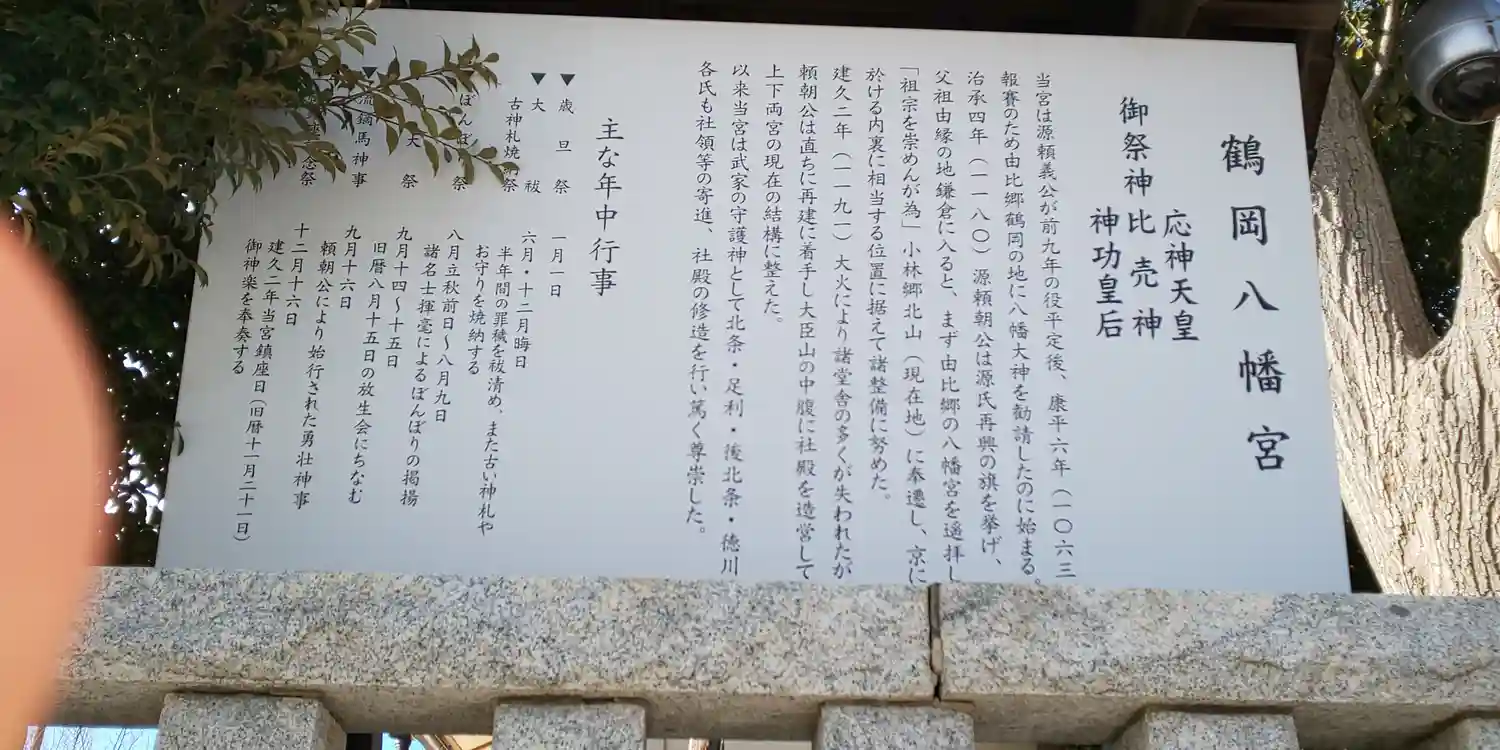 鶴岡八幡宮
応神天皇
御祭神 比売神
神功皇后
当宮は源頼義公が前九年の役平定後、康平六年(一〇六三
報賽のため由比郷鶴岡の地に八幡大神を勧請したのに始まる。
治承四年(一一八〇)源頼朝公は源氏再興の旗を挙げ、
父祖由縁の地鎌倉に入ると、まず由比郷の八幡宮を遥拝し
「祖宗を崇めんが為」小林郷北山(現在地)に奉遷し、京に
於ける内裏に相当する位置に据えて諸整備に努めた。
建久二年(一一九一)大火により諸堂舎の多くが失われたが
頼朝公は直ちに再建に着手し大臣山の中腹に社殿を造営して
上下両宮の現在の結構に整えた。
以来当宮は武家の守護神として北条・足利・後北条・徳川
各氏も社領等の寄進、社殿の修造を行い篤く尊崇した。
主な年中行事
▼歳旦祭 一月一日
▼大祓 六月・十二月晦日
古神札焼納祭 半年間の罪穢を祓清め、また古い神札や
お守りを焼納する
ぼんぼ 祭 八月立秋前日〜八月九日
諸名士揮毫によるぼんぼりの掲揚
大祭 九月十四〜十五日
旧暦八月十五日の放生会にちなむ
流鏑馬神事 九月十六日
頼朝公により始行された勇壮神事
念祭 十二月十六日
建久二年当宮鎮座日(旧暦十一月二十一日)
御神楽を奉奏する